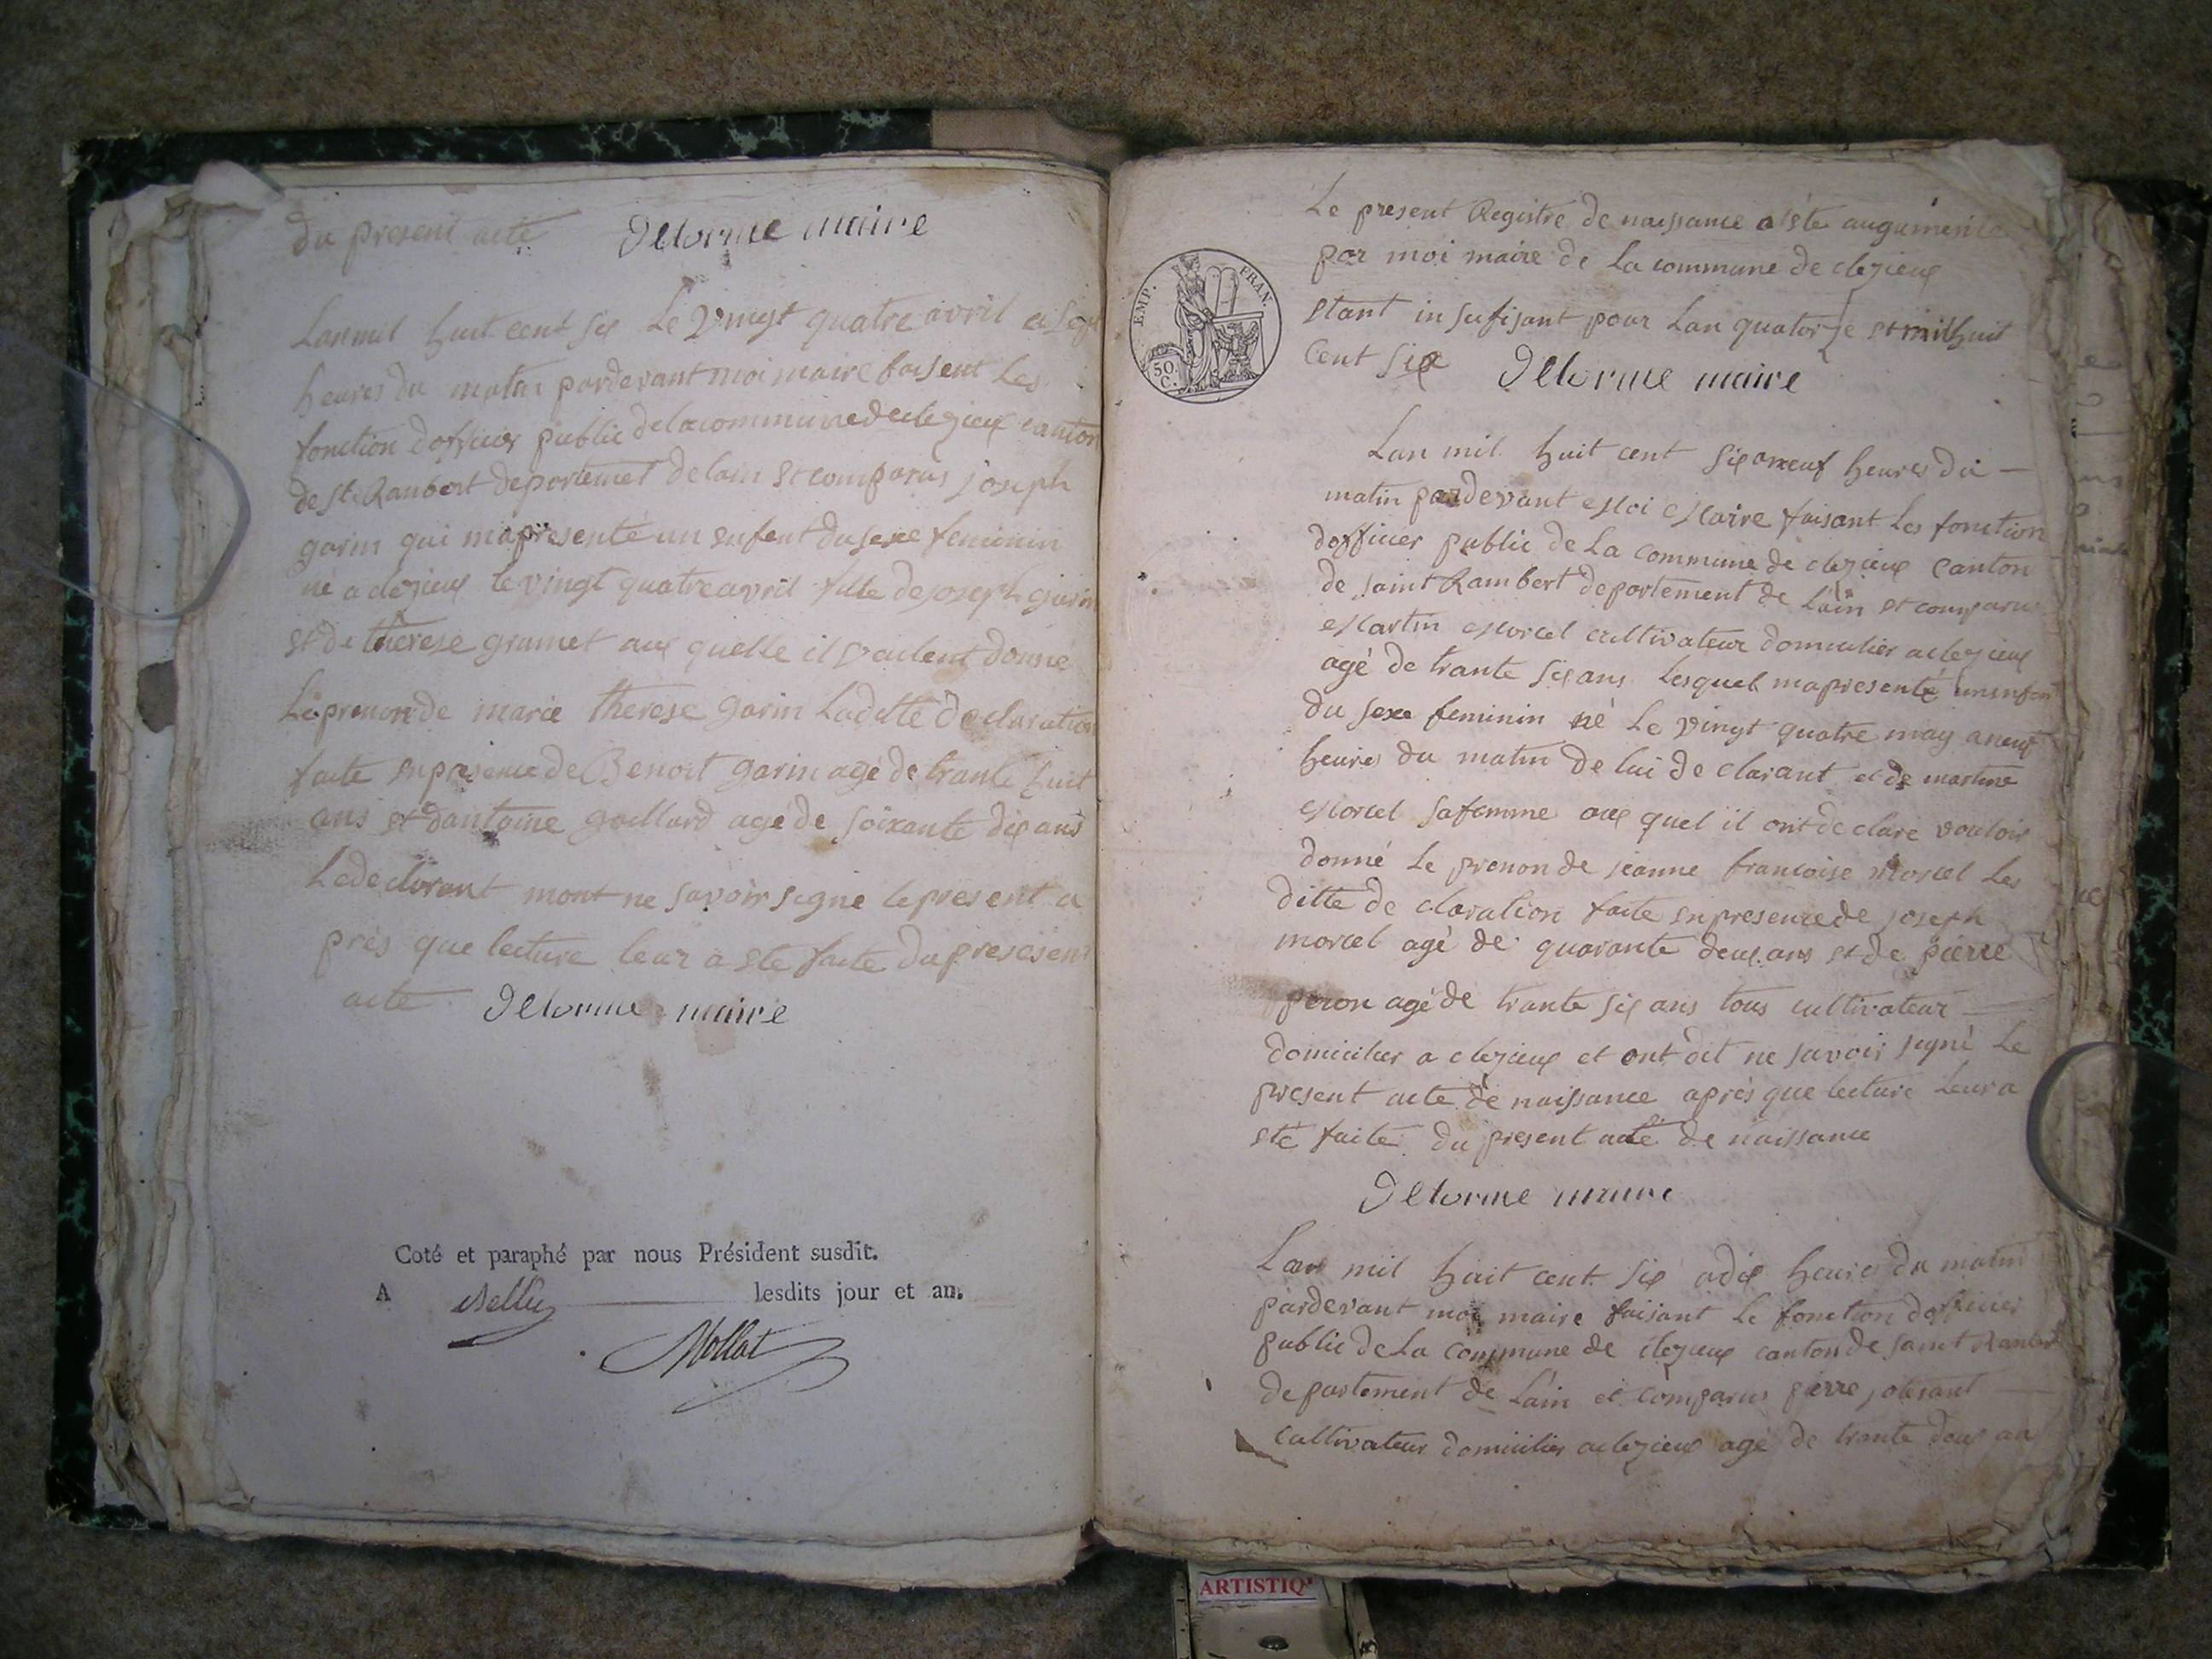 du present acte Delorme maire
Lan mil huit cent six Le Vingt quatre avril a sept
heures du matin pardevant moi maire faisent Les
fonction dofficier public de la commune de clezieux canton
de St Rambert departemet de lain st comparus joseph
garin qui ma presenté un enfent du sexe feminin
né a clezieux le vingt quatre avril fille de joseph garin
st de therese gramet aux quelle il veulent donné
Le prenon de marie therese garin Laditte declaration
faite en presence de Benoit garin agé de trante huit
ans et dantoine gaillard agé de soixante dix ans
Le declarant mont ne savoir signé le present a
près que lecture leur a ete faite du present
acte Delorme maire
Coté et paraphé par nous Président susdit.
A Belley lesdits jour et an.
Mollat
Le present Registre de naissance a été augumenté
par moi maire de La commune de clezieux
étant insufisant pour Lan quatorze et mil huit
cent six Delorme maire
EMP. FRAN.
50 C.
Lan mil huit cent six a neuf heures du
matin pardevant Moi Maire faisant Les fonction
dofficier public de La commune de clezieux canton
de saint Rambert departement de Lain st comparus
Martin Morcel cultivateur domicilier a clezieux
agé de trante six ans Lesquel ma presenté un enfan
du sexe feminin né Le vingt quatre may a neuf
heures du matin de lui de clarant et de martine
Morcel sa femme aux quel il ont de clare vouloir
donné Le prenon de jeanne francoise Morcel Les
ditte de claration faite en presence de joseph
morcel agé de quarante deux ans et de pierre
peron agé de trante six ans tous cultivateur
domicilier a clezieux et ont dit ne savoir signé Le
present acte de naissance après que lecture Leur a
été faite du present acte de naissance
Delorme maire
Lan mil huit cent six a dix heures du matin
pardevant moi maire faisant Le fonction dofficier
public de La commune de clezieux canton de saint Rambert
departement de Lain et comparus pierre
cultivateur domicilier a clezieux agé de trante deux an
ARTISTIQ